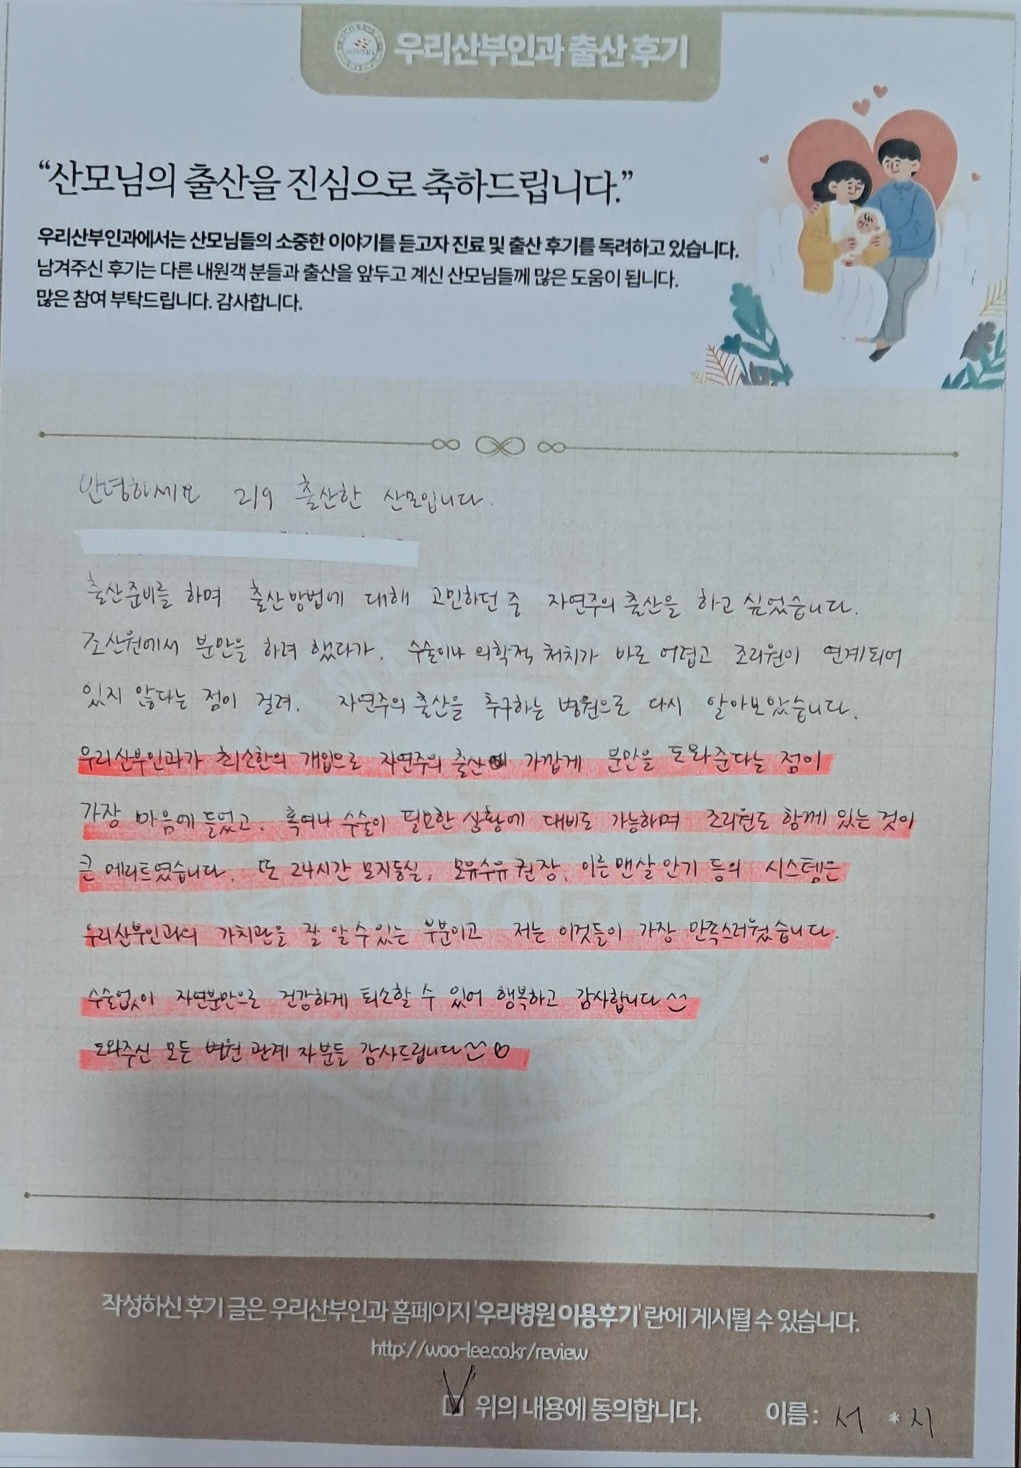 우리산부인과 출산 후기
“산모님의 출산을 진심으로 축하드립니다.”
우리산부인과에서는 산모님들의 소중한 이야기를 듣고자 진료 및 출산 후기를 독려하고 있습니다.
남겨주신 후기는 다른 내원객 분들과 출산을 앞두고 계신 산모님들께 많은 도움이 됩니다.
많은 참여 부탁드립니다. 감사합니다.
안녕하세요 2/9 출산한 산모입니다.
출산준비를 하며 출산방법에 대해 고민하던 중 자연주의 출산을 하고 싶었습니다.
조산원에서 분만을 하려 했다가, 수술이나 의학적 처치가 바로 어렵고 조리원이 연계되어
있지 않다는 점이 걸려, 자연주의 출산을 추구하는 병원으로 다시 알아보았습니다.
우리산부인과가 최소한의 개입으로 자연주의 출산에 가깝게 분만을 도와준다는 점이
가장 마음에 들었고, 혹여나 수술이 필요한 상황에 대비도 가능하며 조리원도 함께 있는 것이
큰 메리트였습니다. 또 24시간 모자동실, 모유수유 권장, 이른 맨살 안기 등의 시스템은
우리산부인과의 가치관을 잘 알 수 있는 부분이고 저는 이것들이 가장 만족스러웠습니다.
수술없이 자연분만으로 건강하게 퇴소할 수 있어 행복하고 감사합니다
도와주신 모든 병원 관계자분들 감사드립니다 ♡
작성하신 후기 글은 우리산부인과 홈페이지 '우리병원 이용후기' 란에 게시될 수 있습니다.
http://woo-lee.co.kr/review
위의 내용에 동의합니다. 이름 : 서 * 지